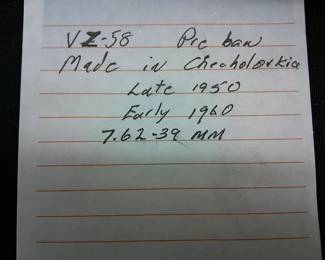 VZ-58 Pre ban
Made in Checholovkia
Late 1950
Early 1960
7.62-39 MM